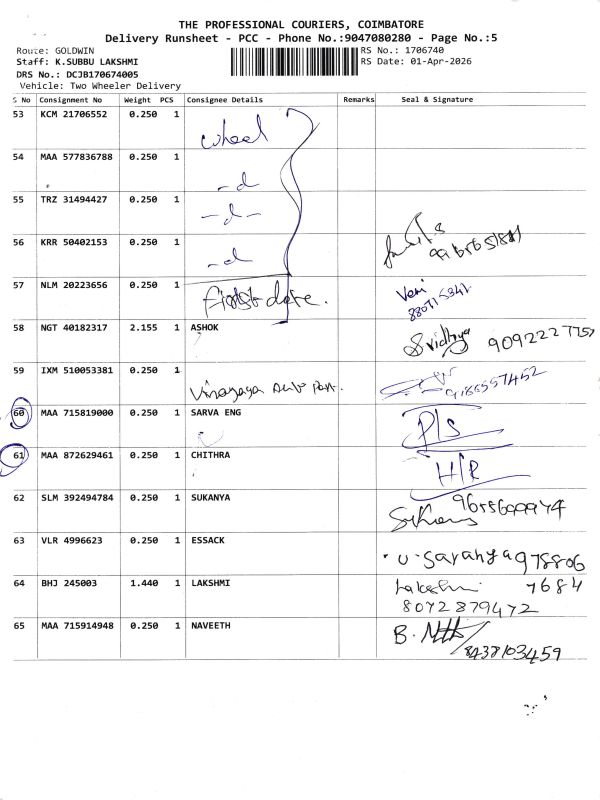 THE PROFESSIONAL COURIERS, COIMBATORE
Delivery Runsheet - PCC - Phone No.:9047080280 - Page No.:5
Route: GOLDWIN
Staff: K.SUBBU LAKSHMI
DRS No.: DCJB170674005
Vehicle: Two Wheeler Delivery
RS No.: 1706740
RS Date: 01-Apr-2026
S No Consignment No Weight PCS Consignee Details Remarks Seal & Signature
53 KCM 21706552 0.250 1 wheel
54 MAA 577836788 0.250 1 -d
55 TRZ 31494427 0.250 1 -d-
56 KRR 50402153 0.250 1 -d
57 NLM 20223656 0.250 1 Veni
58 NGT 40182317 2.155 1 ASHOK Sridhya 9092227757
59 IXM 510053381 0.250 1 Vinayaga Auto Part. 9788557452
60 MAA 715819000 0.250 1 SARVA ENG P/S
61 MAA 872629461 0.250 1 CHITHRA H/R
62 SLM 392494784 0.250 1 SUKANYA 9655699974
63 VLR 4996623 0.250 1 ESSACK U. Saranya 978806
7684
64 BHJ 245003 1.440 1 LAKSHMI Lakshmi
8072879472
65 MAA 715914948 0.250 1 NAVEETH B.
8438103459